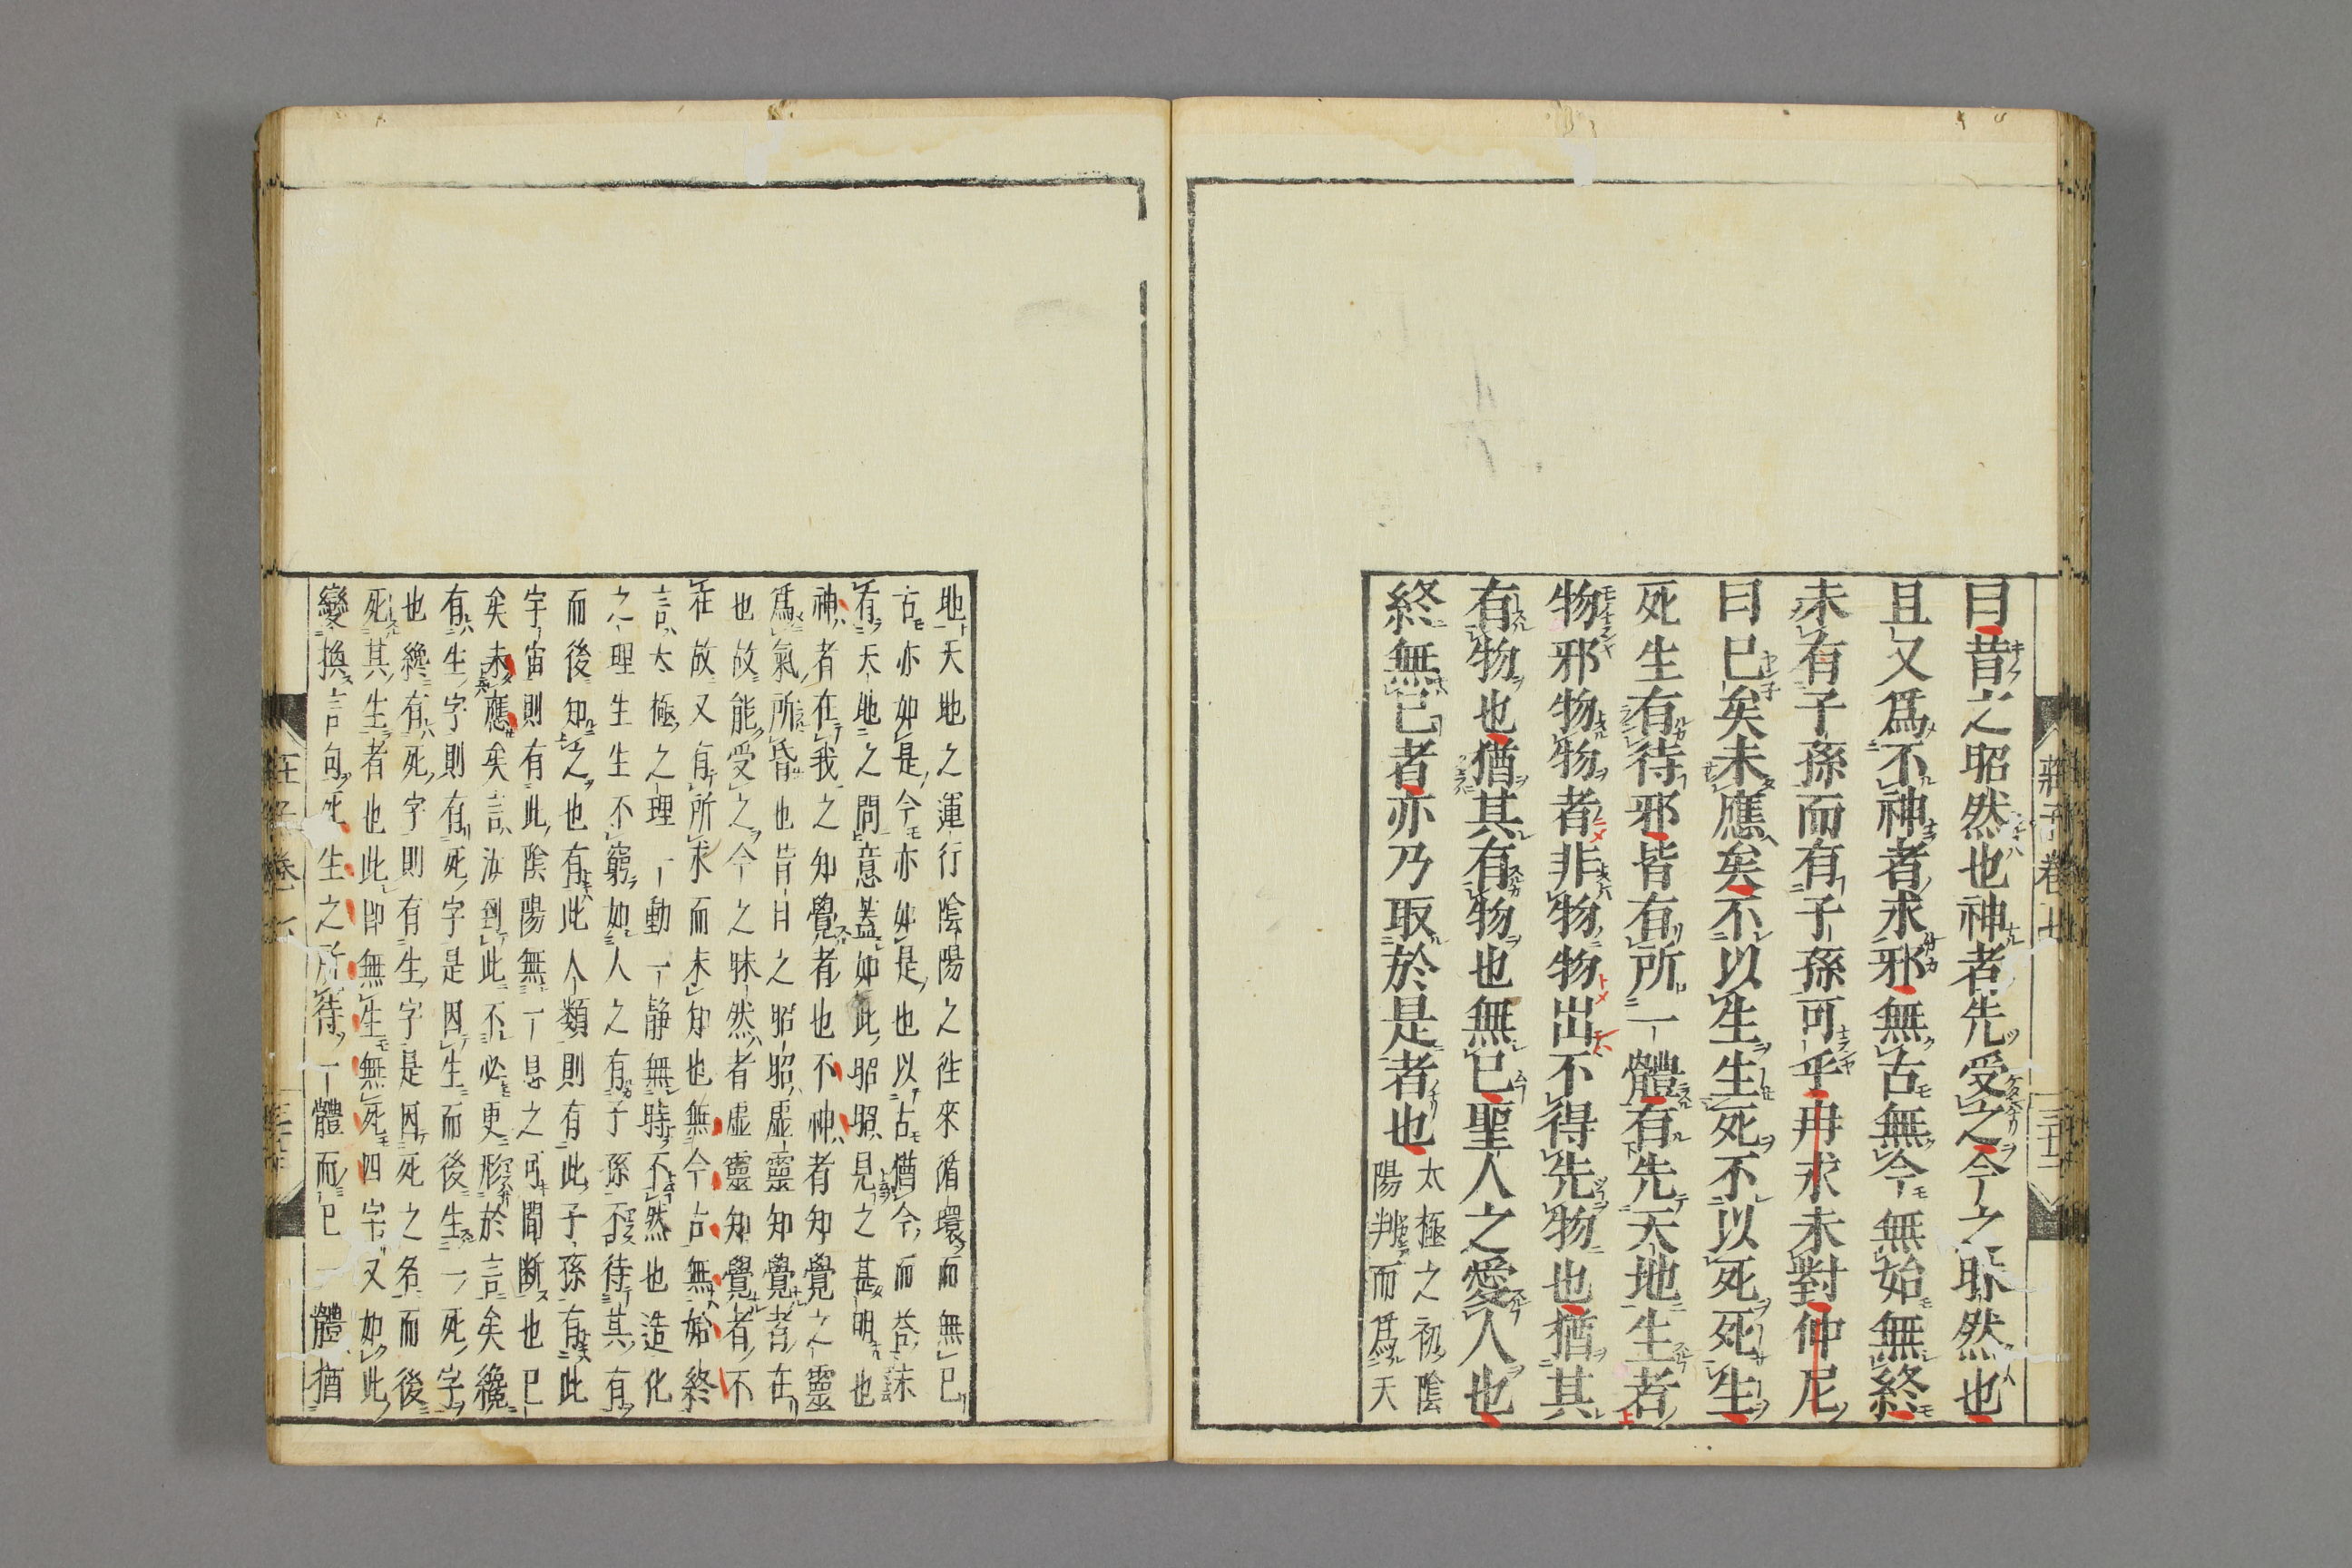 曰昔之昭然也神者先受之今之昧然也
且又爲不神者求邪無古無今無始無終
未有子孫而有子孫可乎冉求未對仲尼
曰已矣未應矣不以生生死不以死死生
死生有待邪皆有所一體有先天地生者
物邪物物者非物物出不得先物也猶其
有物也猶其有物也無已聖人之愛人也
終無已者亦乃取於是者也
太極之初陰
陽判而爲天
地天地之運行陰陽之往來循環而無已
古亦如是今亦如是也以古猶今而荅
有天地之問意蓋如此昭昭見之甚明也
神者在我之知覺者也不神者知覺之靈
爲氣所昏也昔日之昭昭虛靈知覺者在
也故能受之今之昧然者虛靈知覺者不
在故又有所求而未知也無今古無始終
言太極之理一動一静無時不然也造化
之理生生不窮如人之有子孫不待其有
而後知之也有此人類則有此子孫有此
宇宙則有此陰陽無一息之可間断也已
矣未應矣言汝到此不必更形於言矣纔
有生字則有死字是因生而後生一死字
也纔有死字則有生字是因死之名而後
死其生者也此即無生無死四字又如此
變換言句死生之所待一體而已一體猶
莊子卷七